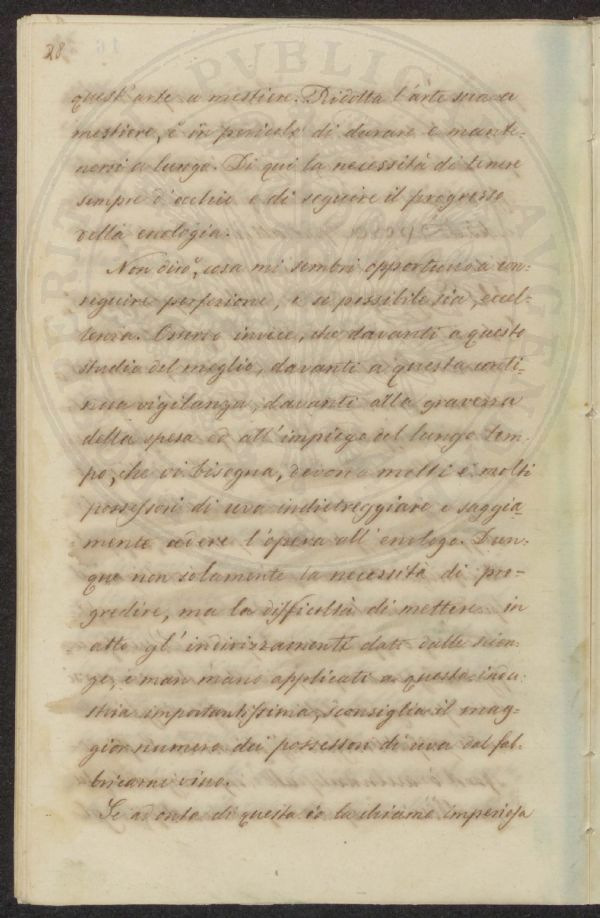 28.
quest'arte a mestiere. Ridotta l'arte sua a
mestiere, è in pericolo di durare e mante-
nersi a lungo. Di qui la necessità di tenere
sempre d'occhio e di seguire il progresso
della enologia.
Non dirò, cosa mi sembri opportuno a con-
seguire perfezione, e se possibile sia, eccel-
lenza. Osservo invece, che davanti a questo
studio del meglio, davanti a questa conti-
nua vigilanza, davanti alla gravezza
della spesa ed all'impiego del lungo tem-
po, che vi bisogna, devono molti e molti
possessori di uva indietreggiare e saggia-
mente cedere l'opera all'enologo. Dun-
que non solamente la necessità di pro-
gredire, ma la difficoltà di mettere in
atto gl'indirizzamenti dati dalle scien-
ze, e man mano applicati a questa indu-
stria importantissima, sconsiglia il mag-
gior numero dei possessori di uva dal fab-
bricarne vino.
Se ad onta di questa io la chiamo imperiosa
PVBLICAE